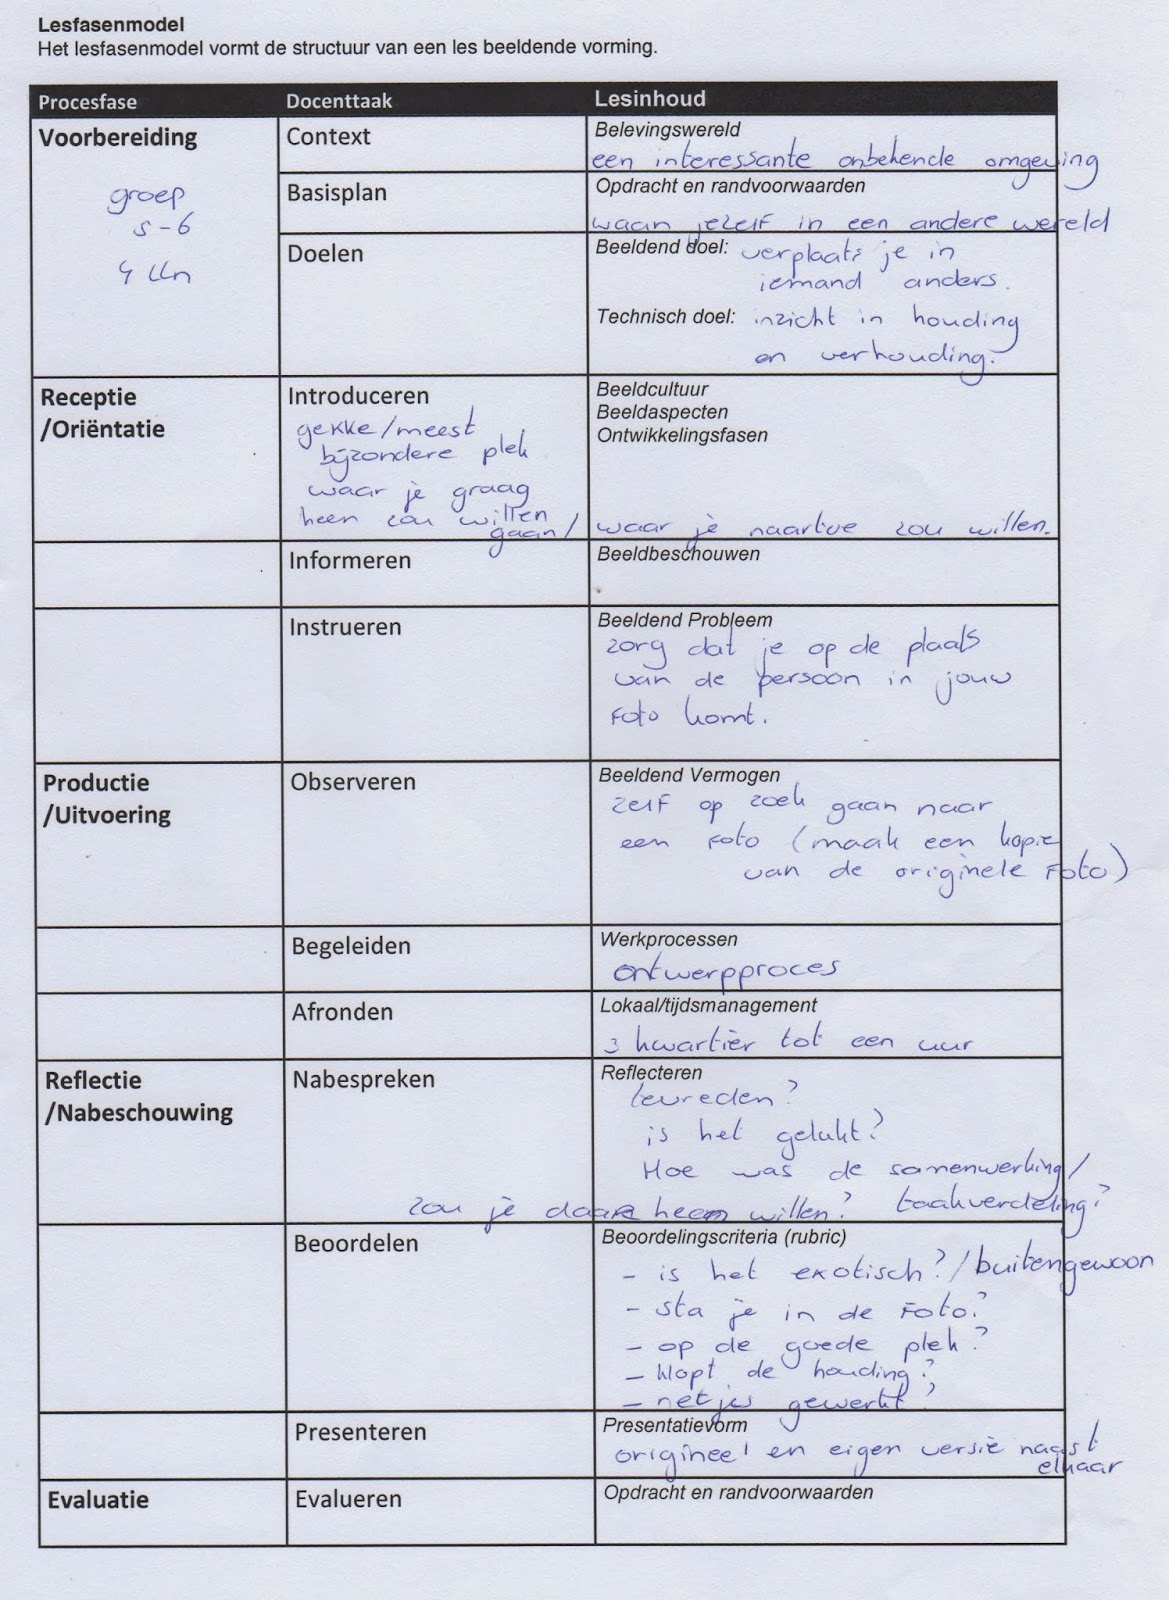 Lesfasenmodel
Het lesfasenmodel vormt de structuur van een les beeldende vorming.
Procesfase Docenttaak Lesinhoud
Voorbereiding Context Belevingswereld
een interessante onbekende omgeving
groep
5-6
4 lln
Basisplan Opdracht en randvoorwaarden
waan jezelf in een andere wereld
Doelen Beeldend doel: verplaats je in
iemand anders.
Technisch doel: inzicht in houding
en verhouding.
Receptie
/Oriëntatie
Introduceren
gekke/meest
bijzondere plek
waar je graag
heen zou willen
gaan/
Beeldcultuur
Beeldaspecten
Ontwikkelingsfasen
waar je naartoe zou willen.
Informeren Beeldbeschouwen
Instrueren Beeldend Probleem
zorg dat je op de plaats
van de persoon in jouw
foto komt.
Productie
/Uitvoering
Observeren Beeldend Vermogen
zelf op zoek gaan naar
een foto (maak een kopie
van de originele foto)
Begeleiden Werkprocessen
ontwerpproces
Afronden Lokaal/tijdsmanagement
3 kwartier tot een uur
Reflectie
/Nabeschouwing
Nabespreken Reflecteren
tevreden?
is het gelukt?
Hoe was de samenwerking/
taakverdeling?
zou je daar heen willen?
Beoordelen Beoordelingscriteria (rubric)
- is het exotisch?/buitengewoon
- sta je in de foto?
- op de goede plek?
- klopt de houding?
- netjes gewerkt?
Presenteren Presentatievorm
origineel en eigen versie naast
elkaar
Evaluatie Evalueren Opdracht en randvoorwaarden